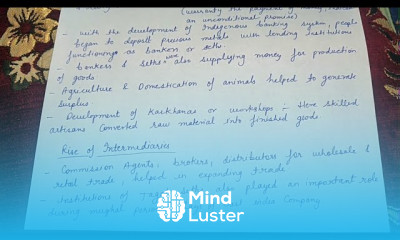 (warranty the payment of money,
an unconditional promise)
- with the development of Indigenous banking system, people
began to deposit precious metals with lending Institutions
functioning as bankers or seths.
- bankers & seths were also supplying money for production
of goods
- Agriculture & Domestication of animals helped to generate
surplus
- Development of Karkhanas or workshops :- Here skilled
artisans Converted raw material into finished goods
Rise of Intermediaries
- Commission Agents, brokers, distributors for wholesale &
retail trade, helped in expanding trade
- Institutions of Jagat Seths also played an important role
during mughal India Company
Mind
Luster